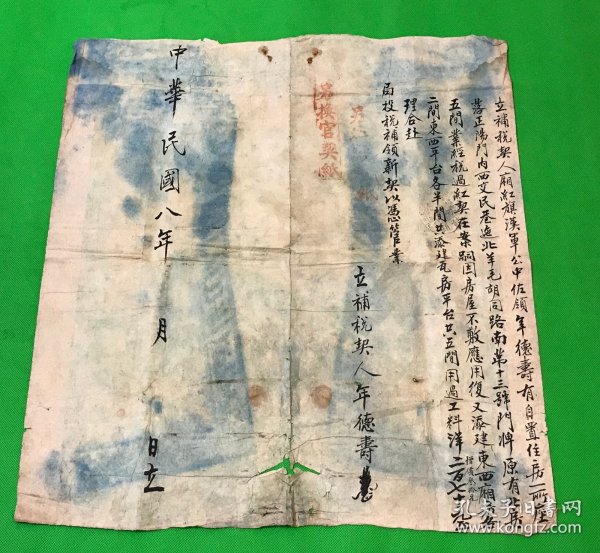 立補稅契人廂紅旗漢軍公中佐領年德壽有自置住房一所座
落正陽門內西交民巷迤北羊毛胡同路南第十三號門牌原有北房
五間業經稅過紅契在案嗣因房屋不敷應用復又添建東西廂房
二間東西平台各半間共添建瓦房平台共五間用過工料洋二百七十元
理合赴
局投稅補領新契以憑管業
另換官契紙
立補稅契人年德壽
中華民國八年 月 日立
孔夫子旧书网
www.kongfz.com